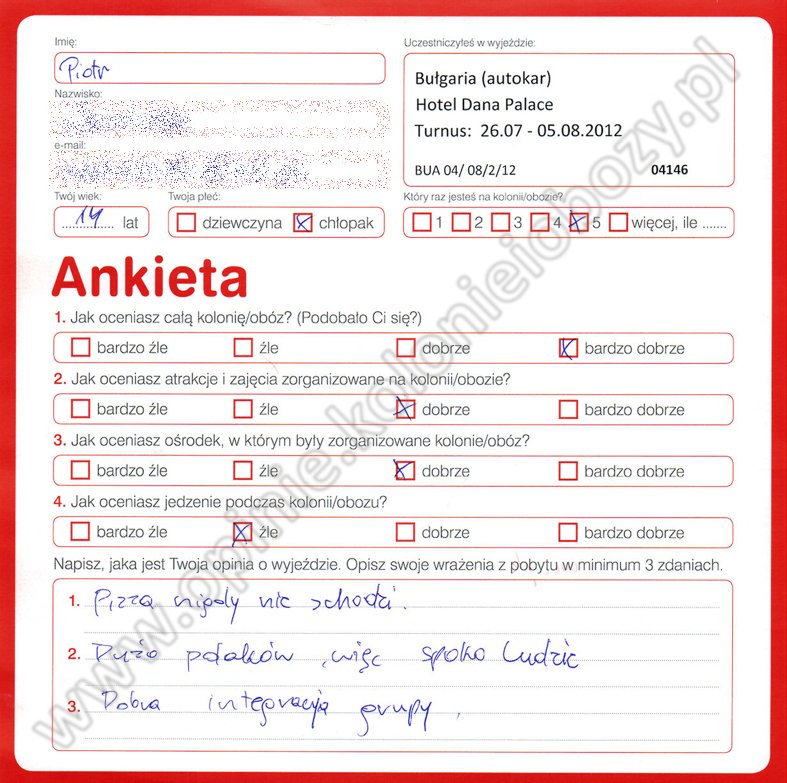 Imię:
Uczestniczyłeś w wyjeździe:
Piotr
Bułgaria (autokar)
Hotel Dana Palace
Turnus: 26.07 - 05.08.2012
BUA 04/ 08/2/12 04146
Nazwisko:
e-mail:
Twój wiek:
Twoja płeć:
Który raz jesteś na kolonii/obozie?
14 lat
dziewczyna chłopak
1 2 3 4 5 więcej, ile .......
Ankieta
1. Jak oceniasz całą kolonię/obóz? (Podobało Ci się?)
bardzo źle źle dobrze bardzo dobrze
2. Jak oceniasz atrakcje i zajęcia zorganizowane na kolonii/obozie?
bardzo źle źle dobrze bardzo dobrze
3. Jak oceniasz ośrodek, w którym były zorganizowane kolonie/obóz?
bardzo źle źle dobrze bardzo dobrze
4. Jak oceniasz jedzenie podczas kolonii/obozu?
bardzo źle źle dobrze bardzo dobrze
Napisz, jaka jest Twoja opinia o wyjeździe. Opisz swoje wrażenia z pobytu w minimum 3 zdaniach.
1. Pizza nigdy nie schodzi.
2. Dużo polaków, więc spoko ludzie
3. Dobra integracja grupy.
www.opinie.kolonieiobozy.pl